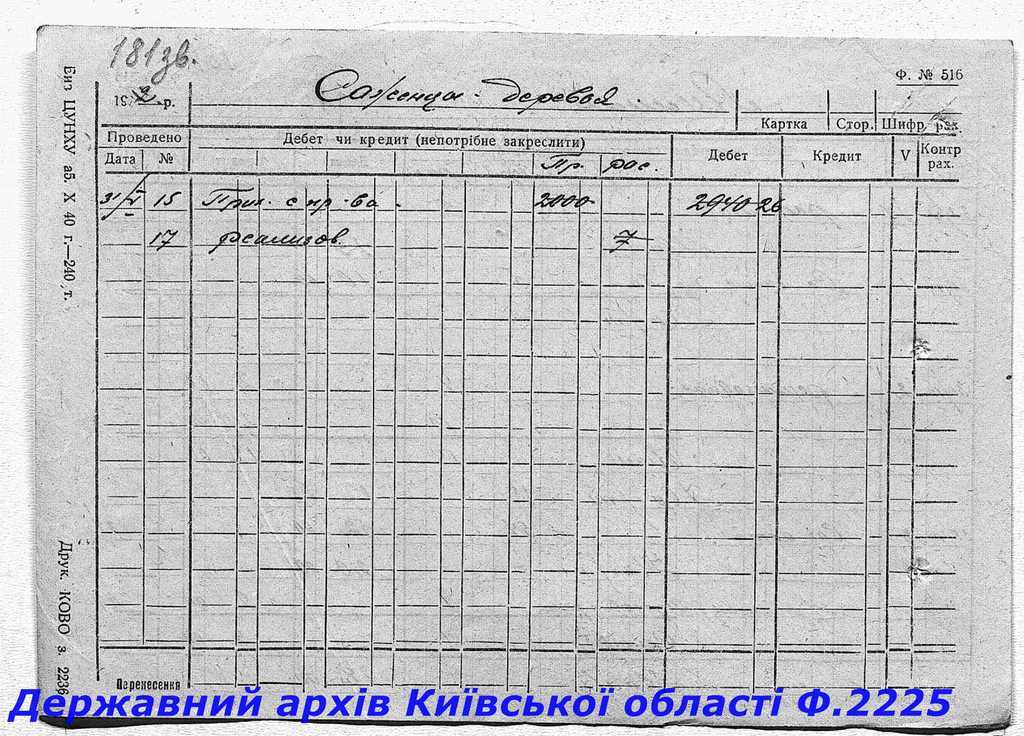 181зв.
Ф. № 516
194 -р.
Саженцы - деревья.
Картка Стор. Шифр рах.
Проведено
Дебет чи кредит (непотрібне закреслити)
Дебет Кредит V Контр рах.
Дата №
Пр. рас.
31/V 15 Прих. с пр-ва - 2000- 2940-26
17 реализов. 7
Перенесення
Биз ЦУНХУ аб. Х 40 г.—240, т.
Друк. КОВО з. 2236
Державний архів Київської області Ф.2225